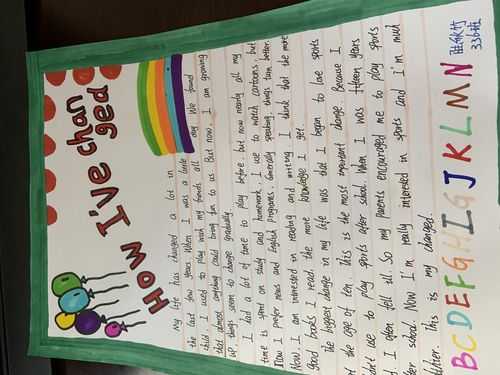 How I've chan
ged
My life has changed a lot in
the last few years When I was a little
child I used to play with my friends all
day We found
that almost anything could bring fun to us But now I am growing
up, things seem to change gradually
I had a lot of time to play before, but now nearly all my
time is spent on study and homework. I use to watch cartoons, but
Now I prefer news and English programs. Generally speaking, things turn better.
Now, I am interested in reading and writing I think that the more
good books I read, the more knowledge I get.
The biggest change in my life was that I began to love sports
t the age of ten This is the most important change Because I
dn't use to play sports after school. When I was fifteen years
d I often fell ill. So my parents encouraged me to play sports
fter school. Now I'm really interested in sports and I'm much
. This is my changed.
BCDEFGHIGJKLMN
336班